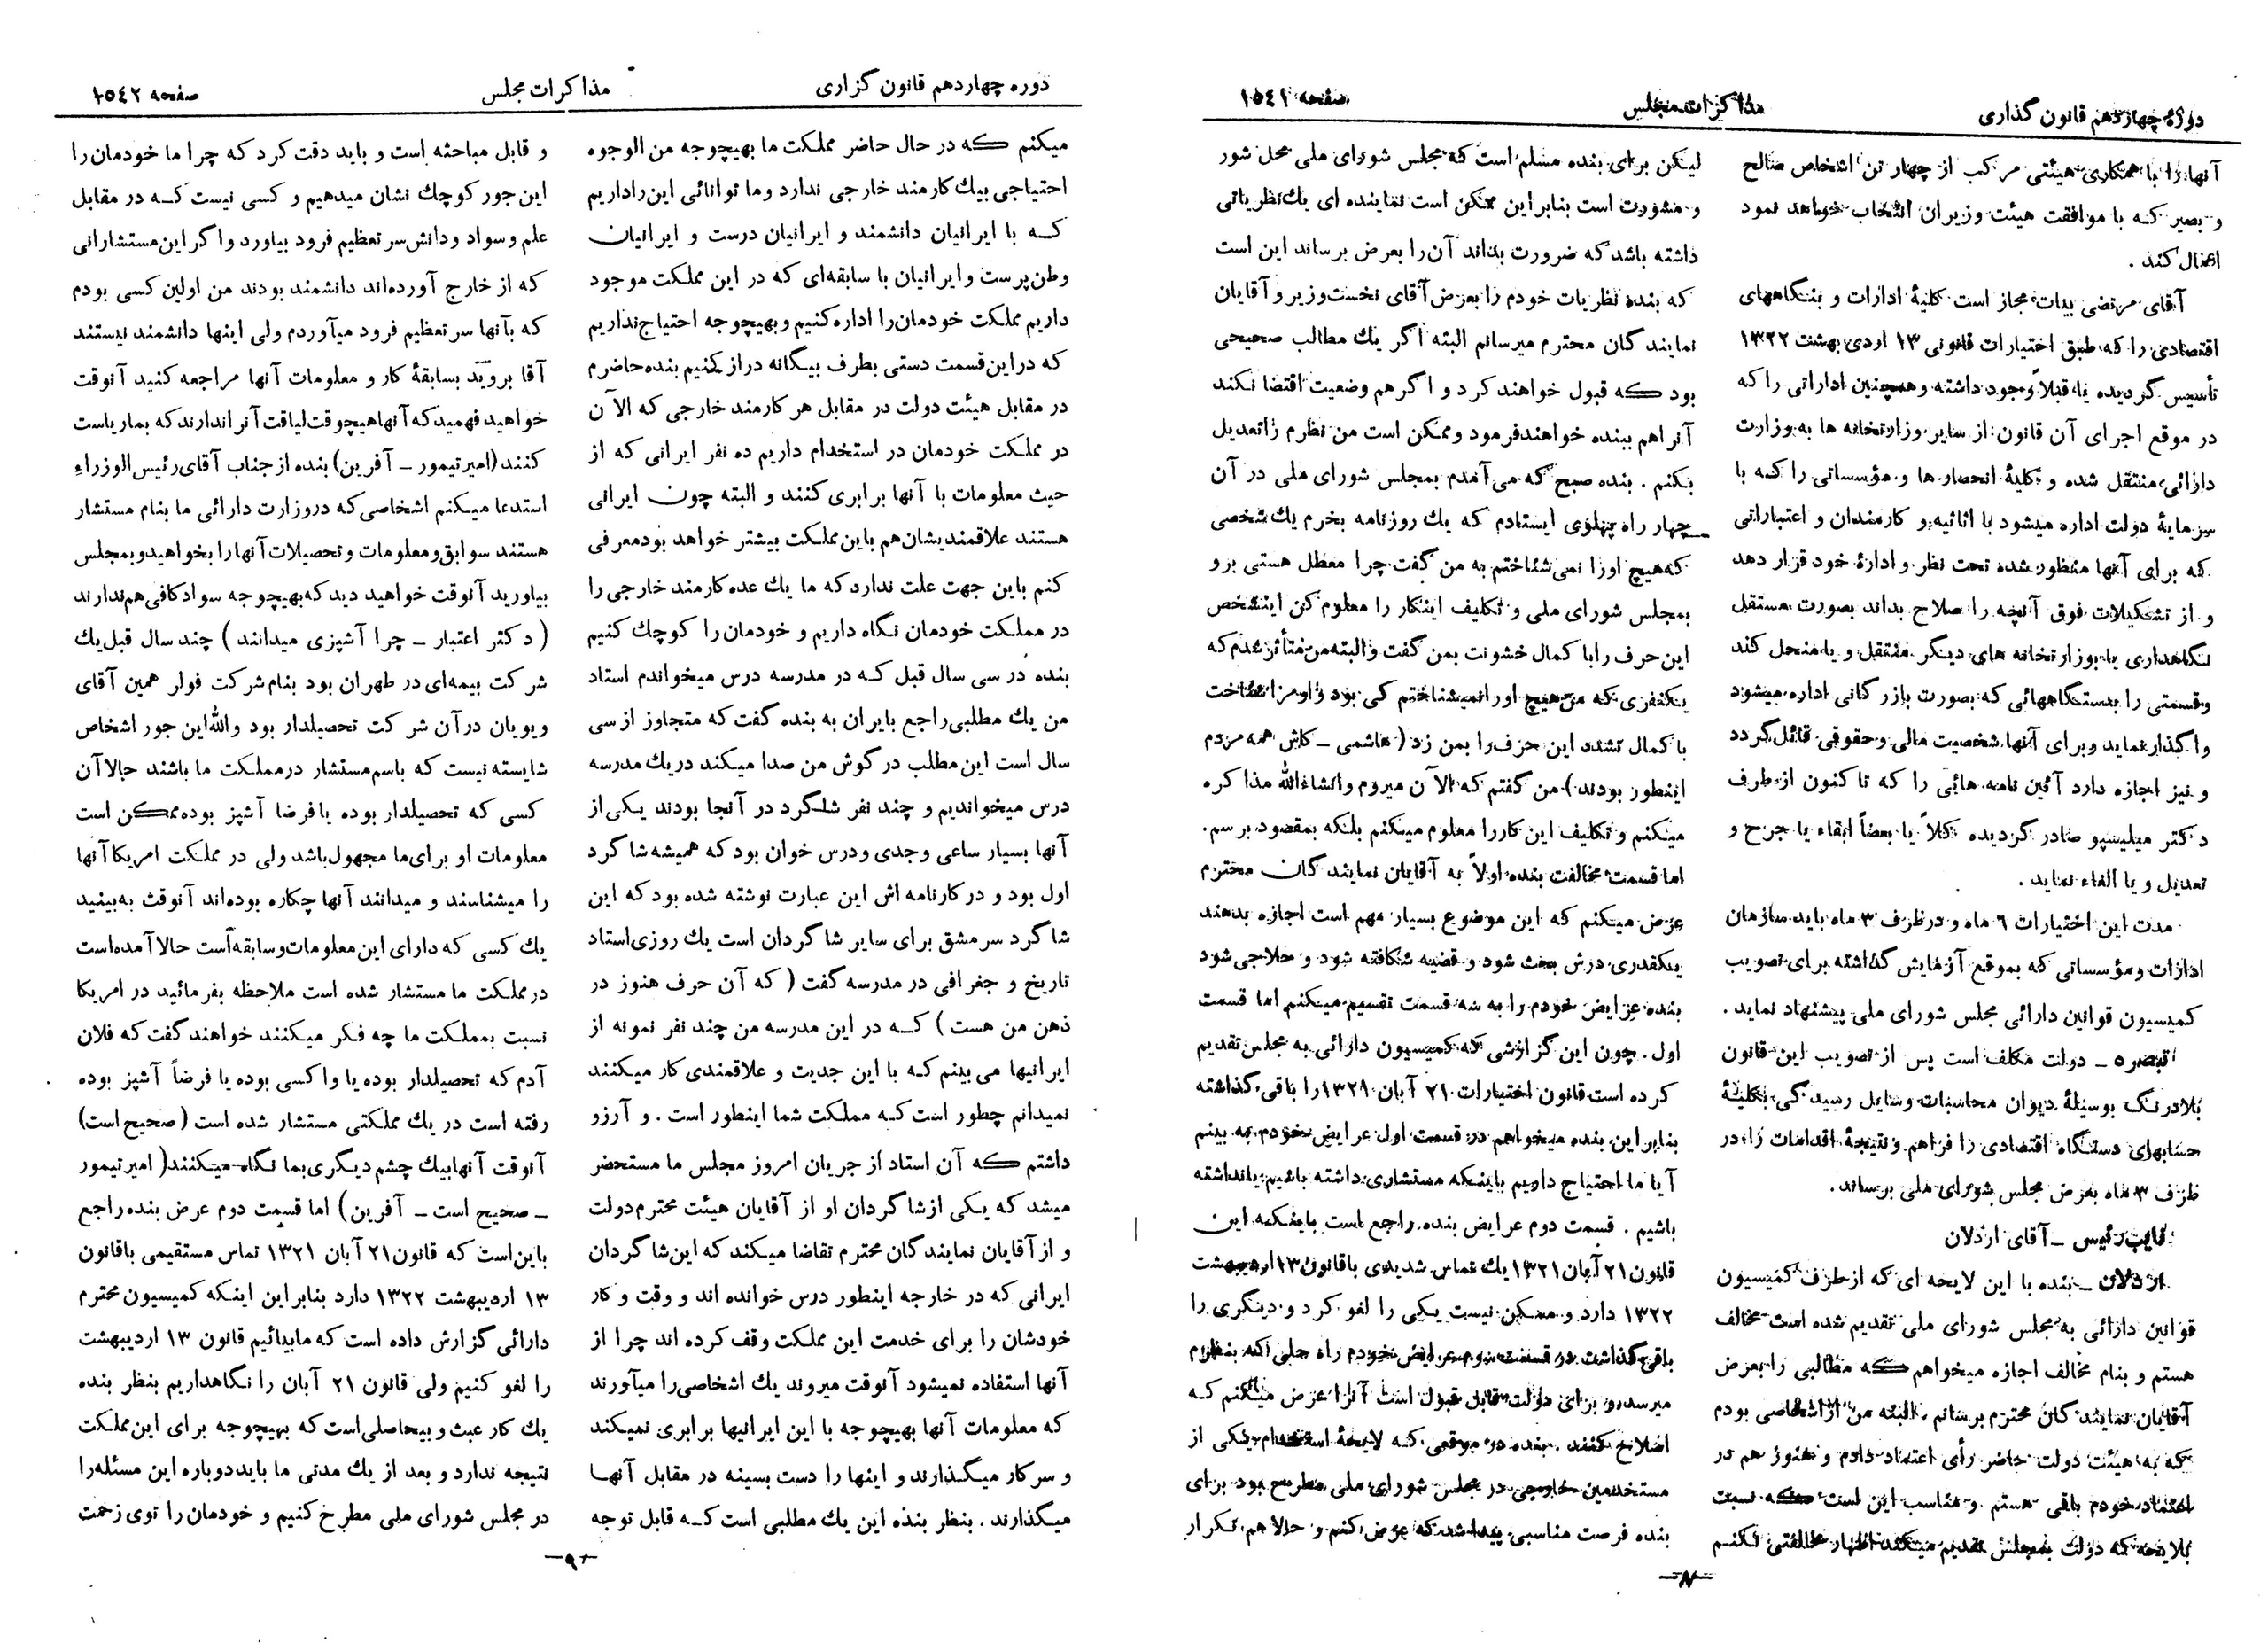 دورهٔ چهاردهم قانون گذاری
مذاکرات مجلس
صفحه ۱۵۴۱
آنها را با همکاری هیئتی مرکب از چهار تن اشخاص صالح
و بصیر که با موافقت هیئت وزیران انتخاب خواهد نمود
اعمال کند .
آقای مرتضی بیات مجاز است کلیهٔ ادارات و بنگاههای
اقتصادی را که طبق اختیارات قانونی ۱۳ اردی بهشت ۱۳۲۲
تأسیس گردیده یا قبلاً وجود داشته و همچنین اداراتی را که
در موقع اجرای آن قانون از سایر وزارتخانه ها به وزارت
دارائی منتقل شده و کلیهٔ انحصارها و مؤسساتی را که با
سرمایهٔ دولت اداره میشود با اثاثیه و کارمندان و اعتباراتی
که برای آنها منظور شده تحت نظر و ادارهٔ خود قرار دهد
و از تشکیلات فوق آنچه را صلاح بداند بصورت مستقل
نگاهداری یا بوزارتخانه های دیگر منتقل و یا منحل کند
وقسمتی را بدستگاههائی که بصورت بازرگانی اداره میشود
واگذار نماید وبرای آنها شخصیت مالی وحقوقی قائل گردد
و نیز اجازه دارد آئین نامه هائی را که تا کنون از طرف
دکتر میلیسپو صادر گردیده کلاً یا بعضاً ابقاء یا جرح و
تعدیل و یا الغاء نماید .
مدت این اختیارات ٦ ماه و در ظرف ۳ ماه باید سازمان
ادارات ومؤسساتی که بموقع آزمایش گذاشته برای تصویب
کمیسیون قوانین دارائی مجلس شورای ملی پیشنهاد نماید .
تبصره ـ دولت مکلف است پس از تصویب این قانون
بلادرنگ بوسیلهٔ دیوان محاسبات وسایل رسیدگی بکلیهٔ
حسابهای دستگاه اقتصادی را فراهم و نتیجهٔ اقدامات را در
ظرف ۳ ماه بعرض مجلس شورای ملی برساند .
نایب رئیس ـ آقای اردلان
اردلان ـ بنده با این لایحه ای که از طرف کمیسیون
قوانین دارائی به مجلس شورای ملی تقدیم شده است مخالف
هستم و بنام مخالف اجازه میخواهم که مطالبی را بعرض
آقایان نمایندگان محترم برسانم . البته من از اشخاصی بودم
که به هیئت دولت حاضر رأی اعتماد دادم و هنوز هم در
اعتماد خودم باقی هستم و مناسب این است که نسبت
بلایحه که دولت بمجلس تقدیم میکند اظهار مخالفتی نکنم
لیکن برای بنده مسلم است که مجلس شورای ملی محل شور
و مشورت است بنابراین ممکن است نماینده ای یك نظریاتی
داشته باشد که ضرورت بداند آن را بعرض برساند این است
که بنده نظریات خودم را بعرض آقای نخست وزیر و آقایان
نمایندگان محترم میرسانم البته اگر یك مطالب صحیحی
بود که قبول خواهند کرد و اگر هم وضعیت اقتضا نکند
آنرا هم ببنده خواهند فرمود وممکن است من نظرم را تعدیل
بکنم . بنده صبح که می آمدم بمجلس شورای ملی در آن
چهار راه پهلوی ایستادم که یك روزنامه بخرم یك شخصی
که هیچ اورا نمی شناختم به من گفت چرا معطل هستی برو
بمجلس شورای ملی و تکلیف اینکار را معلوم کن اینشخص
این حرف را با کمال خشونت بمن گفت و البته من متأثر شدم که
یکنفری که من هیچ اورا نمیشناختم کی بود و او مرا شناخت
با کمال تشدد این حرف را بمن زد (هاشمی ـ کاش همه مردم
اینطور بودند) من گفتم که الآن میروم وانشاءالله مذاکره
میکنم و تکلیف این کار را معلوم میکنم بلکه بمقصود برسم.
اما قسمت مخالفت بنده اولاً به آقایان نمایندگان محترم
عرض میکنم که این موضوع بسیار مهم است اجازه بدهند
یکقدری درش بحث شود و قضیه شکافته شود و حلاجی شود
بنده عرایض خودم را به سه قسمت تقسیم میکنم اما قسمت
اول . چون این گزارشی که کمیسیون دارائی به مجلس تقدیم
کرده است قانون اختیارات ۲۱ آبان ۱۳۲۱ را باقی گذاشته
بنابراین بنده میخواهم در قسمت اول عرایض خودم به بینم
آیا ما احتیاج داریم باینکه مستشاری داشته باشیم یا نداشته
باشیم . قسمت دوم عرایض بنده راجع است باینکه این
قانون ۲۱ آبان ۱۳۲۱ یك تماس شدیدی با قانون ۱۳ اردیبهشت
۱۳۲۲ دارد و ممکن نیست یکی را لغو کرد و دیگری را
باقی گذاشت در قسمت سوم عرایض خودم راه حلی که بنظرم
میرسد و برای دولت قابل قبول است آنرا عرض میکنم که
اصلاح کنند . بنده در موقعی که لایحهٔ استخدام یکی از
مستخدمین خارجی در مجلس شورای ملی مطرح بود برای
بنده فرصت مناسبی پیدا شد که عرض کنم و حالا هم تکرار
ـ۸ـ
دوره چهاردهم قانون گزاری
مذاکرات مجلس
صفحه ۱۵۴۲
میکنم که در حال حاضر مملکت ما بهیچوجه من الوجوه
احتیاجی بیك کارمند خارجی ندارد وما توانائی این را داریم
که با ایرانیان دانشمند و ایرانیان درست و ایرانیان
وطن پرست و ایرانیان با سابقه‌ای که در این مملکت موجود
داریم مملکت خودمان را اداره کنیم و بهیچوجه احتیاج نداریم
که در این قسمت دستی بطرف بیگانه دراز کنیم بنده حاضرم
در مقابل هیئت دولت در مقابل هر کارمند خارجی که الآن
در مملکت خودمان در استخدام داریم ده نفر ایرانی که از
حیث معلومات با آنها برابری کنند و البته چون ایرانی
هستند علاقمندیشان هم باین مملکت بیشتر خواهد بود معرفی
کنم باین جهت علت ندارد که ما یك عده کارمند خارجی را
در مملکت خودمان نگاه داریم و خودمان را کوچك کنیم
بنده در سی سال قبل که در مدرسه درس میخواندم استاد
من یك مطلبی راجع بایران به بنده گفت که متجاوز از سی
سال است این مطلب در گوش من صدا میکند در یك مدرسه
درس میخواندیم و چند نفر شاگرد در آنجا بودند یکی از
آنها بسیار ساعی وجدی ودرس خوان بود که همیشه شاگرد
اول بود و در کارنامه اش این عبارت نوشته شده بود که این
شاگرد سرمشق برای سایر شاگردان است یك روزی استاد
تاریخ و جغرافی در مدرسه گفت ( که آن حرف هنوز در
ذهن من هست ) که در این مدرسه من چند نفر نمونه از
ایرانیها می بینم که با این جدیت و علاقمندی کار میکنند
نمیدانم چطور است که مملکت شما اینطور است . و آرزو
داشتم که آن استاد از جریان امروز مجلس ما مستحضر
میشد که یکی از شاگردان او از آقایان هیئت محترم دولت
و از آقایان نمایندگان محترم تقاضا میکند که این شاگردان
ایرانی که در خارجه اینطور درس خوانده اند و وقت و کار
خودشان را برای خدمت این مملکت وقف کرده اند چرا از
آنها استفاده نمیشود آنوقت میروند یك اشخاصی را میآورند
که معلومات آنها بهیچوجه با این ایرانیها برابری نمیکند
و سرکار میگذارند و اینها را دست بسینه در مقابل آنها
میگذارند . بنظر بنده این یك مطلبی است که قابل توجه
و قابل مباحثه است و باید دقت کرد که چرا ما خودمان را
این جور کوچك نشان میدهیم و کسی نیست که در مقابل
علم و سواد و دانش سر تعظیم فرود بیاورد و اگر این مستشارانی
که از خارج آورده‌اند دانشمند بودند من اولین کسی بودم
که بآنها سر تعظیم فرود میآوردم ولی اینها دانشمند نیستند
آقا بروید بسابقهٔ کار و معلومات آنها مراجعه کنید آنوقت
خواهید فهمید که آنها هیچوقت لیاقت آنرا ندارند که بما ریاست
کنند (امیرتیمور ـ آفرین) بنده از جناب آقای رئیس الوزراء
استدعا میکنم اشخاصی که در وزارت دارائی ما بنام مستشار
هستند سوابق و معلومات و تحصیلات آنها را بخواهید و بمجلس
بیاورید آنوقت خواهید دید که بهیچوجه سواد کافی هم ندارند
( دکتر اعتبار ـ چرا آشپزی میدانند ) چند سال قبل یك
شرکت بیمه‌ای در طهران بود بنام شرکت فولر همین آقای
ویویان در آن شرکت تحصیلدار بود والله این جور اشخاص
شایسته نیست که باسم مستشار در مملکت ما باشند حالا آن
کسی که تحصیلدار بوده یا فرضا آشپز بوده ممکن است
معلومات او برای ما مجهول باشد ولی در مملکت امریکا آنها
را میشناسند و میدانند آنها چکاره بوده‌اند آنوقت به بینید
یك کسی که دارای این معلومات و سابقه است حالا آمده است
در مملکت ما مستشار شده است ملاحظه بفرمائید در امریکا
نسبت بمملکت ما چه فکر میکنند خواهند گفت که فلان
آدم که تحصیلدار بوده یا واکسی بوده یا فرضاً آشپز بوده
رفته است در یك مملکتی مستشار شده است (صحیح است)
آنوقت آنها بیك چشم دیگری بما نگاه میکنند (امیرتیمور
ـ صحیح است ـ آفرین) اما قسمت دوم عرض بنده راجع
باین است که قانون ۲۱ آبان ۱۳۲۱ تماس مستقیمی با قانون
۱۳ اردیبهشت ۱۳۲۲ دارد بنابراین اینکه کمیسیون محترم
دارائی گزارش داده است که ما بیائیم قانون ۱۳ اردیبهشت
را لغو کنیم ولی قانون ۲۱ آبان را نگاهداریم بنظر بنده
یك کار عبث و بیحاصلی است که بهیچوجه برای این مملکت
نتیجه ندارد و بعد از یك مدتی ما باید دوباره این مسئله را
در مجلس شورای ملی مطرح کنیم و خودمان را توی زحمت
ـ۹ـ